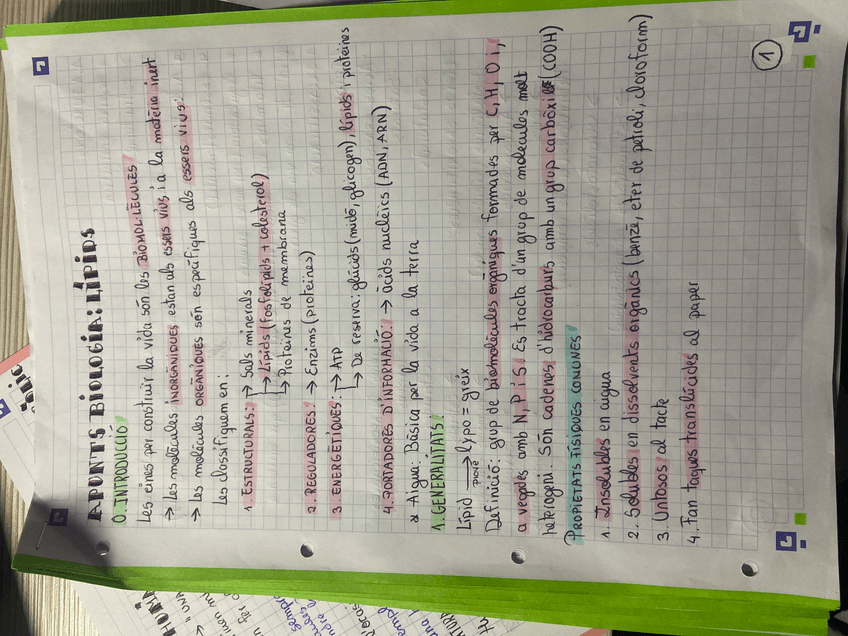 APUNTS BIOLOGIA: LÍPIDS
0. INTRODUCCIÓ
Les eines per construir la vida són les BIOMOL·LÈCULES
→ Les molècules INORGÀNIQUES estan als essers vius i a la matèria inert
→ Les molècules ORGÀNIQUES són específiques als essers vius:
Les classifiquem en:
1. ESTRUCTURALS: → Sals minerals
→ Lípids (fosfolípids + colesterol)
→ Proteïnes de membrana
2. REGULADORES: → Enzims (proteïnes)
3. ENERGÈTIQUES: → ATP
→ De reserva: glúcids (midó, glicogen), lípids i proteïnes
4. PORTADORES D'INFORMACIÓ: → àcids nuclèics (ADN, ARN)
* Aigua: Bàsica per la vida a la terra
1. GENERALITATS:
Lípid → lypo = greix
prové
Definició: grup de biomolècules orgàniques formades per C, H, O i,
a vegades amb N, P i S. Es tracta d'un grup de molècules molt
heterogeni. Són cadenes d'hidrocarburs amb un grup carbòxil (COOH)
PROPIETATS FÍSIQUES COMUNES
1. Insolubles en augua
2. Solubles en dissolvents orgànics (benzè, eter de petroli, cloroform)
3 Untosos al tacte
4. Fan taques translúcides al paper
1